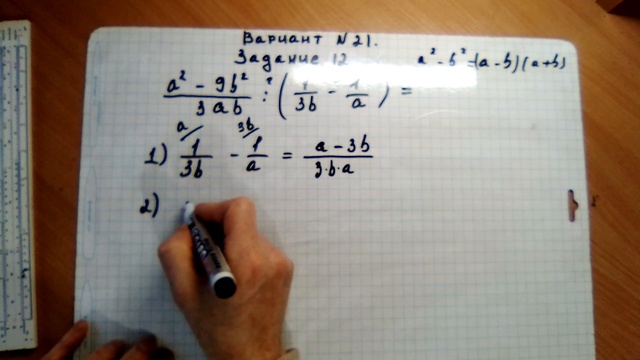 Вариант N21.
Задание 12
a² - b² = (a - b)(a + b)
(a² - 9b²)/(3ab) : (1/(3b) - 1/a) =
a 3b
1) 1/(3b) - 1/a = (a - 3b)/(3·b·a)
2)